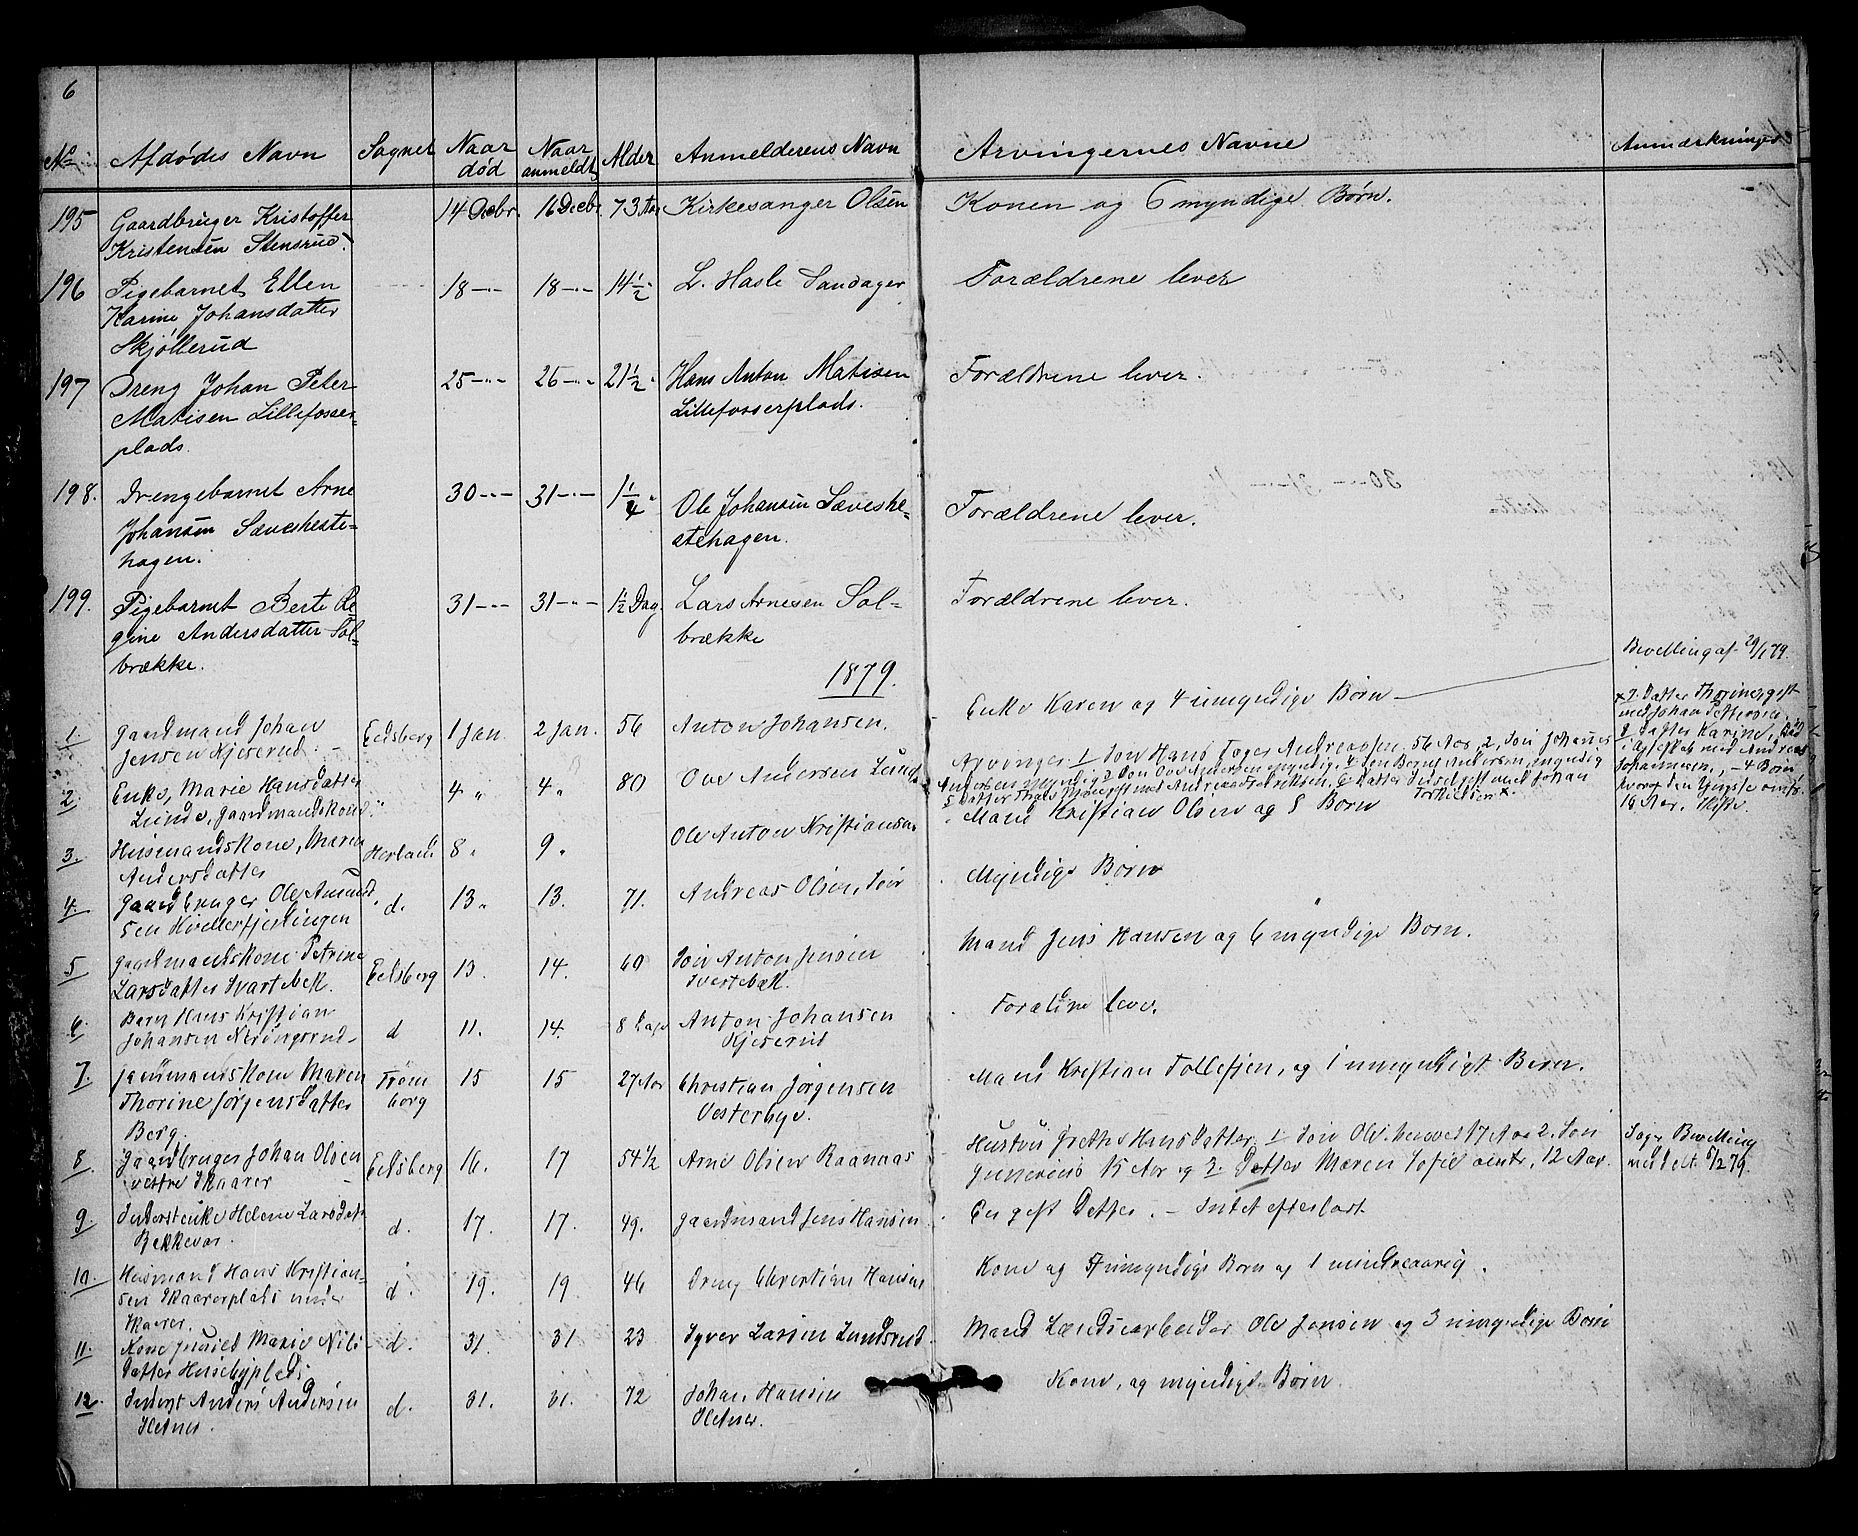 6
No Afdødes Navn Sognet Naar død Naar anmeldt Alder Anmelderens Navn Arvingernes Navne Anmærkninger
195 Gaardbruger Kristoffer 14 Decbr. 16 Decbr. 73 Aar Kirkesanger Olsen Konen og 6 myndige Børn.
Kristensen Stensrud.
196 Pigebarnet Ellen 18 -"- 18 -"- 14 1/2 " L. Hasle Sandager Forældrene lever
Karine Johansdatter
Skjøllerud
197 Dreng Johan Peter 25 -"- 26 -"- 21 1/2 " Hans Anton Matisen Forældrene lever.
Matisen Lillefosser- Lillefosserplads.
plads.
198. Drengebarnet Arne 30 -"- 31 -"- 1 1/4 " Ole Johansen Sæveshe- Forældrene lever.
Johansen Sævesheste- stehagen.
hagen.
199. Pigebarnet Berte Re- 31 -"- 31 -"- 1 1/2 Dag. Lars Arnesen Sol- Forældrene lever.
gine Andersdatter Sol- brække
brække.
1879.
1. Gaardmand Johan Eidsberg 1 Jan. 2 Jan. 56 Anton Johansen. Enke Karen og 4 umyndige Børn — Bevilling af 29/1 79.
Jensen Kjeserud.
2. Enke, Marie Hansdatter " 4 " 4 " 80 Ove Andersen Lund Arvinger 1 Søn Hans Andreassen, 56 Aar, 2, Søn Johannes
Lunde, Gaardmandskone. Andersen myndig 3 Søn Ove Andersen myndig, 4 Søn Bernt Andersen, myndig
5 Datter gift med Andreas Fredriksen, 6 Datter gift med Johan
Torkildsen x.
x 7. Datter Thorine gift
med Johan Pettersen,
8 Datter Karine, død
i Ægteskab med Andreas
Johannesen, - 4 Børn
hvoraf den Yngste omtr.
18 Aar.
3. Husmandskone, Maren Herland 8 " 9 " Ole Anton Kristiansen Mand Kristian Olsen og 8 Børn
Andersdatter
4. Gaardbruger Ole Amund- d. 13 " 13. 71. Andreas Olsen, Søn Myndige Børn
sen
5 Gaardmandskone Petrine Eidsberg 13. 14. 69 Søn Anton Jensen Mand Jens Hansen og 6 myndige Børn.
Larsdatter Svartebek. Svertebæk.
6. Barn Hans Kristian d 11. 14. 8 Dage Anton Johansen Forældrene lever.
Johansen Kjeserud
7. Gaardmandskone Maren Trøm 15 15 27 Aar Christian Jørgensen Mand Kristian Tollefsen, og 1 umyndigt Børn.
Thorine Jørgensdatter borg Vesterbye.
Berg.
8. Gaardbruger Johan Olsen Eidsberg 16. 17 54 1/2 Arne Olsen Raanaas Hustru Grethe Hansdatter, 1 Søn Ole henved 17 Aar 2. Søn Bevilling
vestre Skaarer Gunerius 15 Aar og 3. Datter Maren Sofie omtr. 12 Aar. meddelt 5/2 79.
9 Inderstenke Helene Larsdat. d. 17. 17. 49. Gaardmand Jens Hansen En gift Datter. - Intet efterladt
Bekkevar.
10. Husmand Hans Kristian- d. 19. 19. 46 Dreng Christian Hansen Kone og 5 umyndige Børn og 1 mindreaarig.
sen Skaarerplads under
Skaarer.
11. Kone Marie Nils- d. 31. 31. 23 Syver Larsen Lundsrud. Mand Ole Jensen og 3 umyndige Børn
datter Husebyplads
12. Inderst Anders Andersen d. 31. 31. 72 Johan Hansen Kone, og myndige Børn.
Hetner. Hetner.